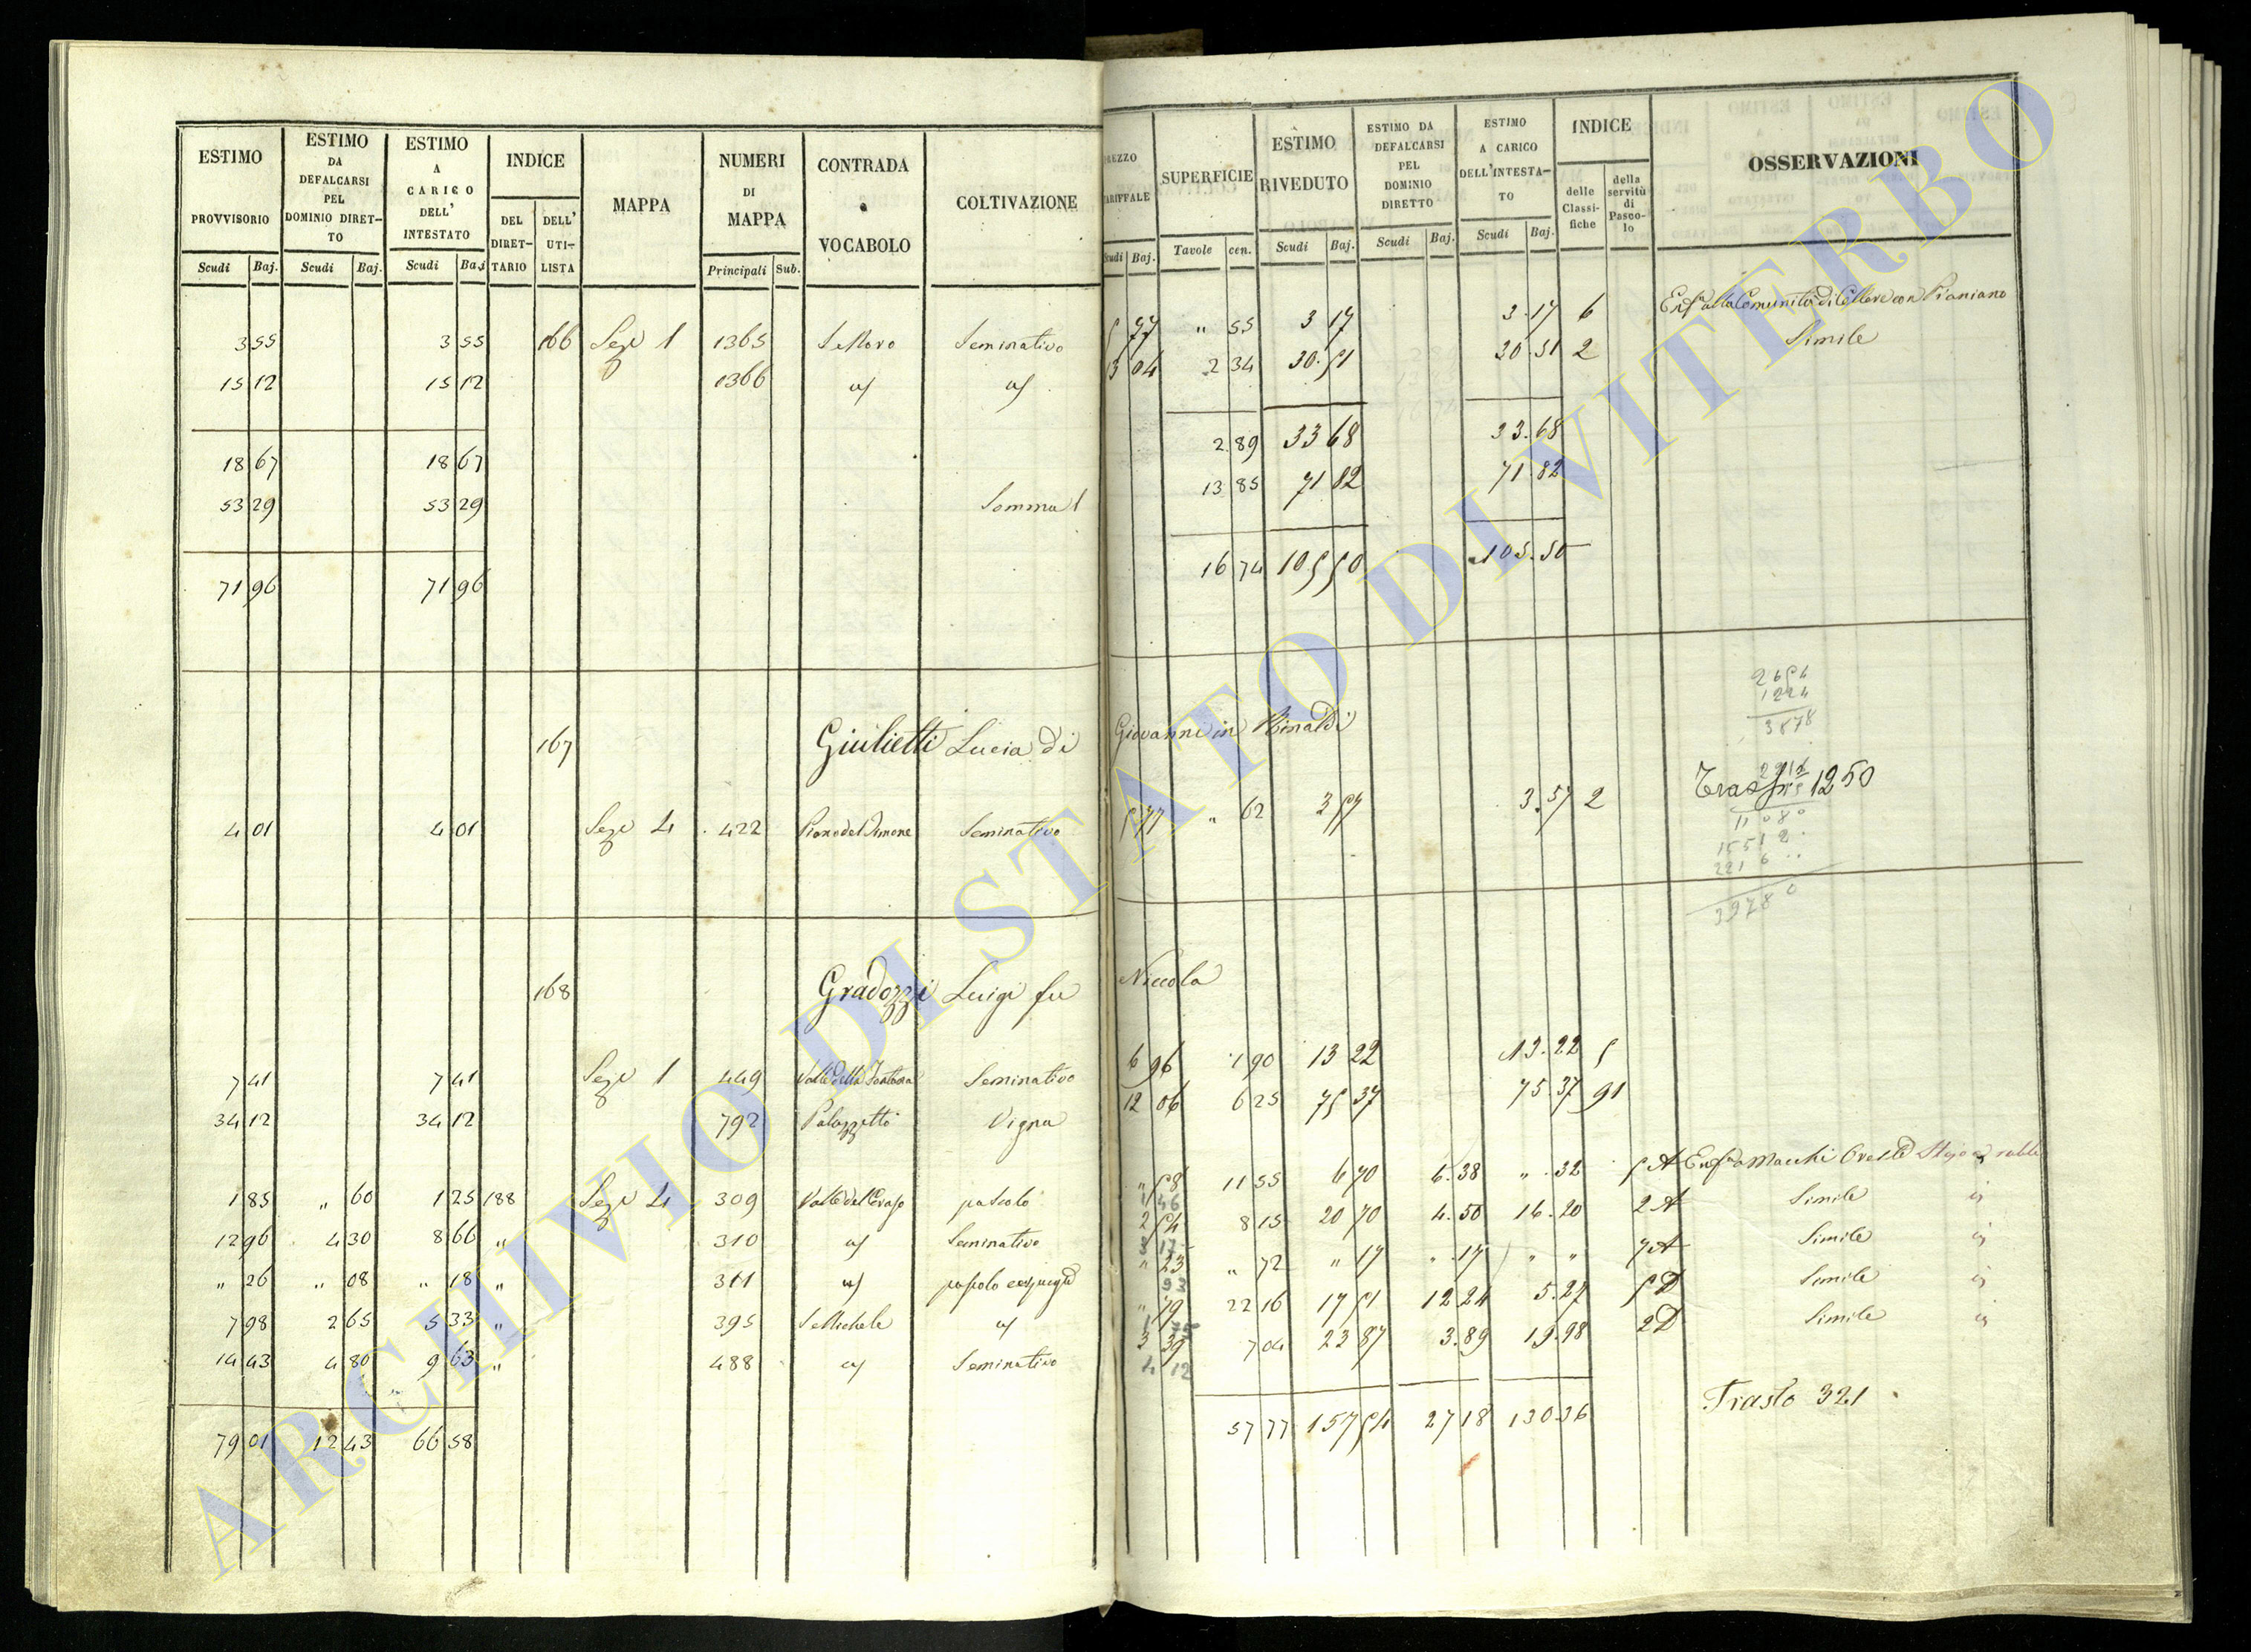 ESTIMO PROVVISORIO Scudi Baj.
ESTIMO DA DEFALCARSI PEL DOMINIO DIRETTO Scudi Baj.
ESTIMO A CARICO DELL' INTESTATO Scudi Baj
INDICE DEL DIRETTARIO DELL' UTILISTA
MAPPA
NUMERI DI MAPPA Principali Sub.
CONTRADA o VOCABOLO
COLTIVAZIONE
REZZO ARIFFALE Scudi Baj.
SUPERFICIE Tavole cen.
ESTIMO RIVEDUTO Scudi Baj.
ESTIMO DA DEFALCARSI PEL DOMINIO DIRETTO Scudi Baj.
ESTIMO A CARICO DELL'INTESTATO Scudi Baj.
INDICE delle Classifiche della servitù di Pascolo
OSSERVAZIONI
3 55 3 55 166 Sezе 1 1365 Seminativo 5 77 " 55 3 17 3.17 6 alla Comunità di Cellere con Pianiano
15 12 15 12 1366 13 04 2 34 30.51 30.51 2 Simile
18 67 18 67 2 89 33 68 33.68
53 29 53 29 Somma 13 85 71 82 71.82
71 96 71 96 16 74 105 50 105.50
2654
1224
3878
167 Giulietti Lucia di Giovanni in Rinaldi
4 01 4 01 4 422 Seminativo 5 77 " 62 3 57 3.57 2 1250
11080
15512.
2216..
39780
168 Gradozzi Luigi fu Niccola
7 41 7 41 1 449 Valle della Fontana Seminativo 6 96 1 90 13 22 13.22 5
34 12 34 12 792 Palazzetti Vigna 12 06 6 25 75 37 75.37 91
1 85 " 60 1 25 188 4 309 pascolo " 58 11 55 6 70 6.38 " .32 5 A
1 46
12 96 4 30 8 66 " 310 Seminativo 2 54 8 15 20 70 4.50 16.20 2 A Simile
3 17
" 26 " 08 " 18 " 311 pascolo " 23 " 72 " 17 " .17 " " 7 A Simile
93
7 98 2 65 5 33 " 395 " 79 22 16 17 51 12 24 5.27 5 D Simile
14 43 4 80 9 63 " 488 Seminativo 3 39 7 04 23 87 3.89 19.98 2 D Simile
4 12
79 01 12 43 66 58 57 77 157 54 27 18 130 36 Trasto 321
ARCHIVIO DI STATO DI VITERBO